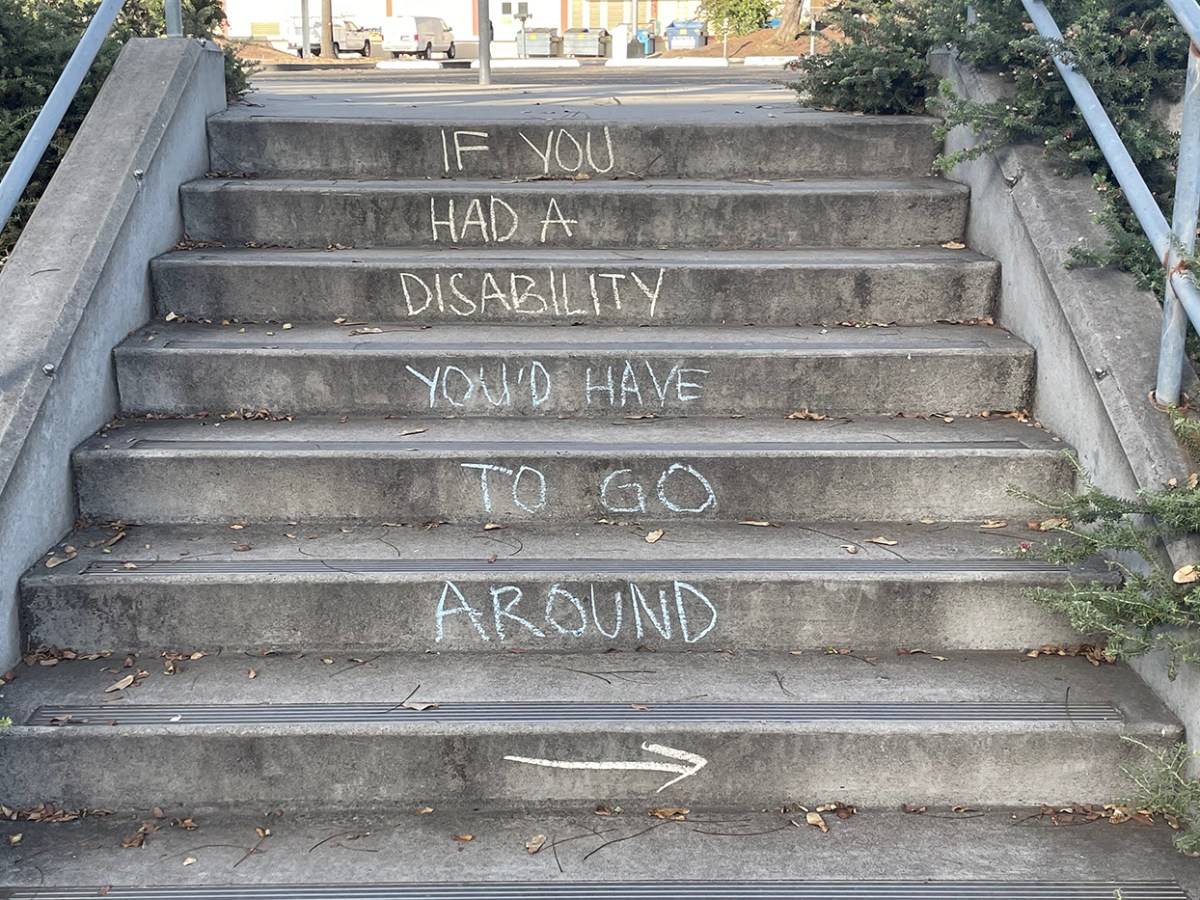 IF YOU
HAD A
DISABILITY
YOU'D HAVE
TO GO
AROUND